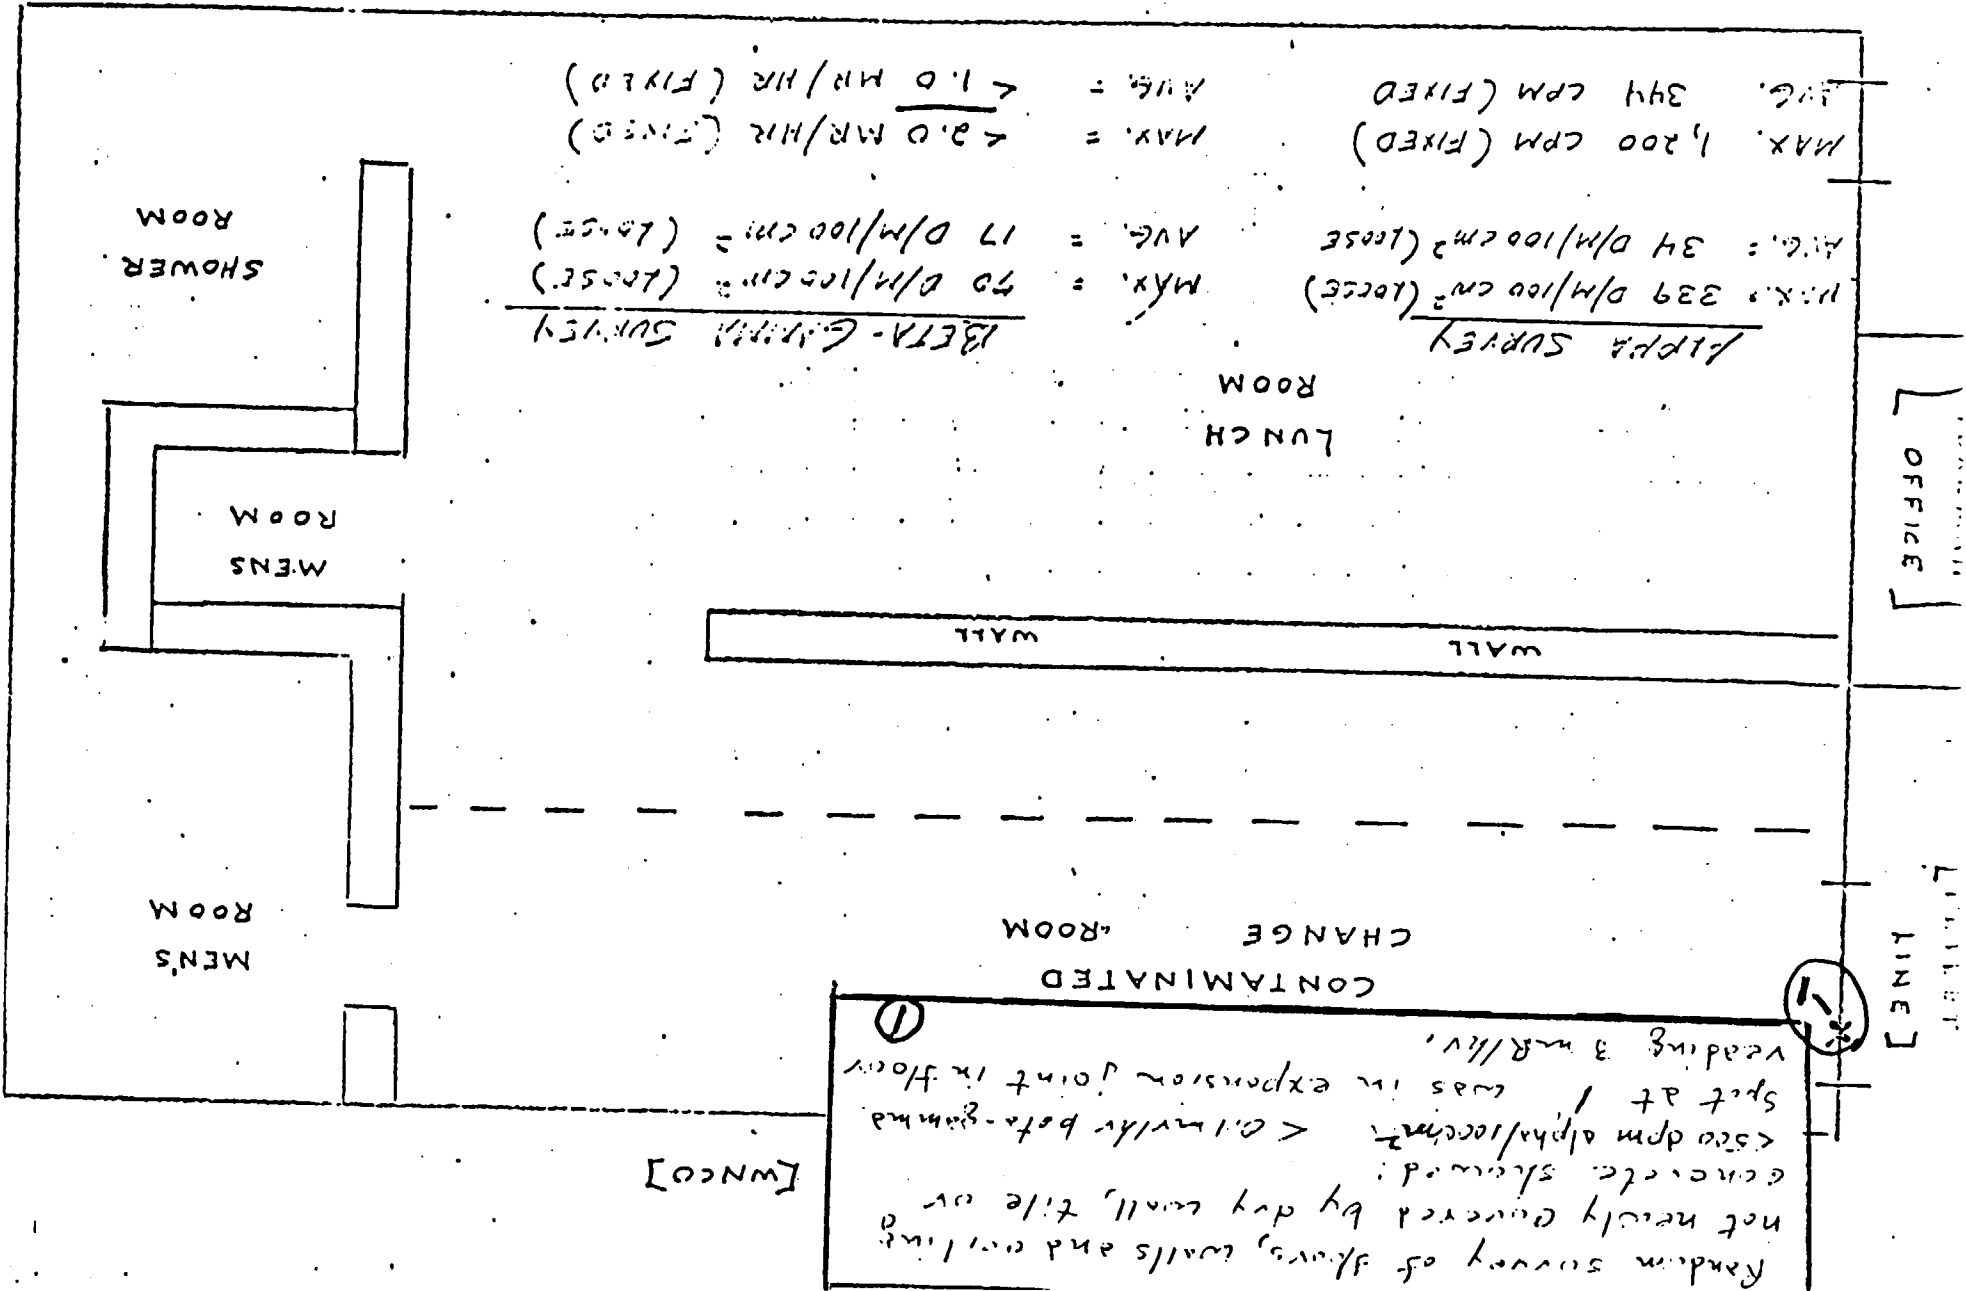 Random survey of floors, walls and ceiling
not newly covered by dry wall, tile or
concrete showed:
<500 dpm alpha/100cm² <0.1mr/hr beta-gamma
Spot at 1 was in expansion joint in floor
reading 3 mR/hr.
1
1
*
[WNCO]
CONTAMINATED
CHANGE ROOM
MEN'S
ROOM
LINE]
WALL WALL
MENS
ROOM
[
OFFICE]
LUNCH
ROOM
ALPHA SURVEY
MAX. 339 D/M/100 cm² (LOOSE)
AVG. = 34 D/M/100 cm² (LOOSE
MAX. 1,200 CPM (FIXED)
AVG. 344 CPM (FIXED
BETA-GAMMA SURVEY
MAX. = 70 D/M/100 cm² (LOOSE)
AVG. = 17 D/M/100 cm² (LOOSE)
MAX. = < 2.0 MR/HR (FIXED)
AVG. = < 1.0 MR/HR (FIXED)
SHOWER
ROOM